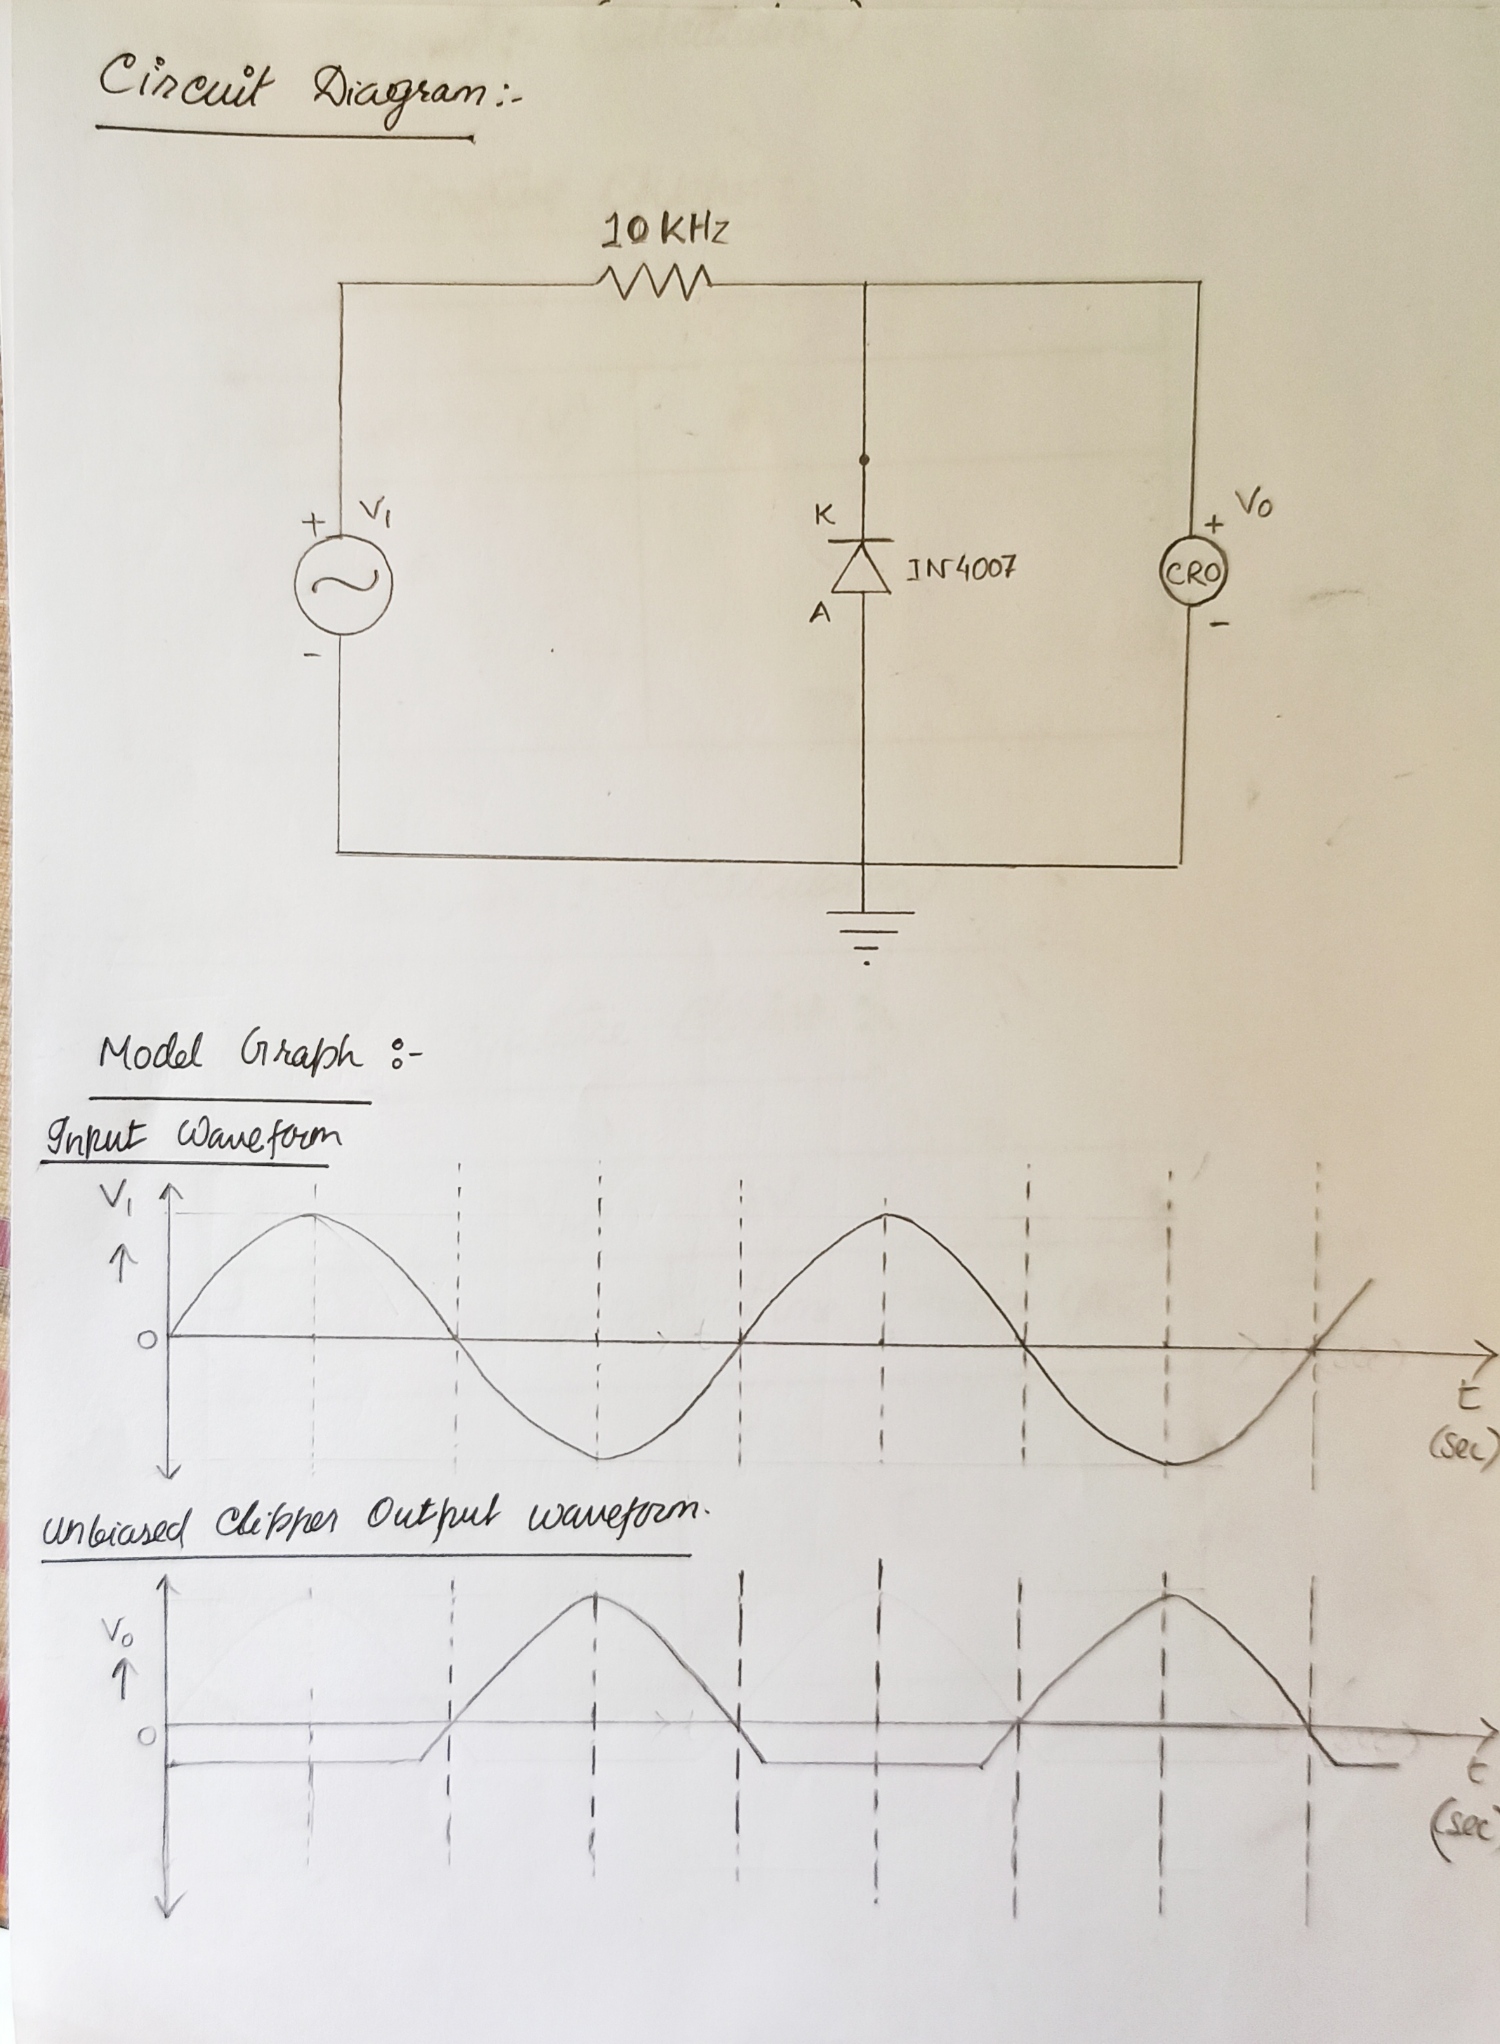 Circuit Diagram:-
10 KHz
+ V1
-
K
A
IN4007
+ V0
CRO
-
Model Graph :-
Input Waveform
V1
0
t
(sec)
Unbiased Clipper Output waveform.
V0
0
t
(sec)